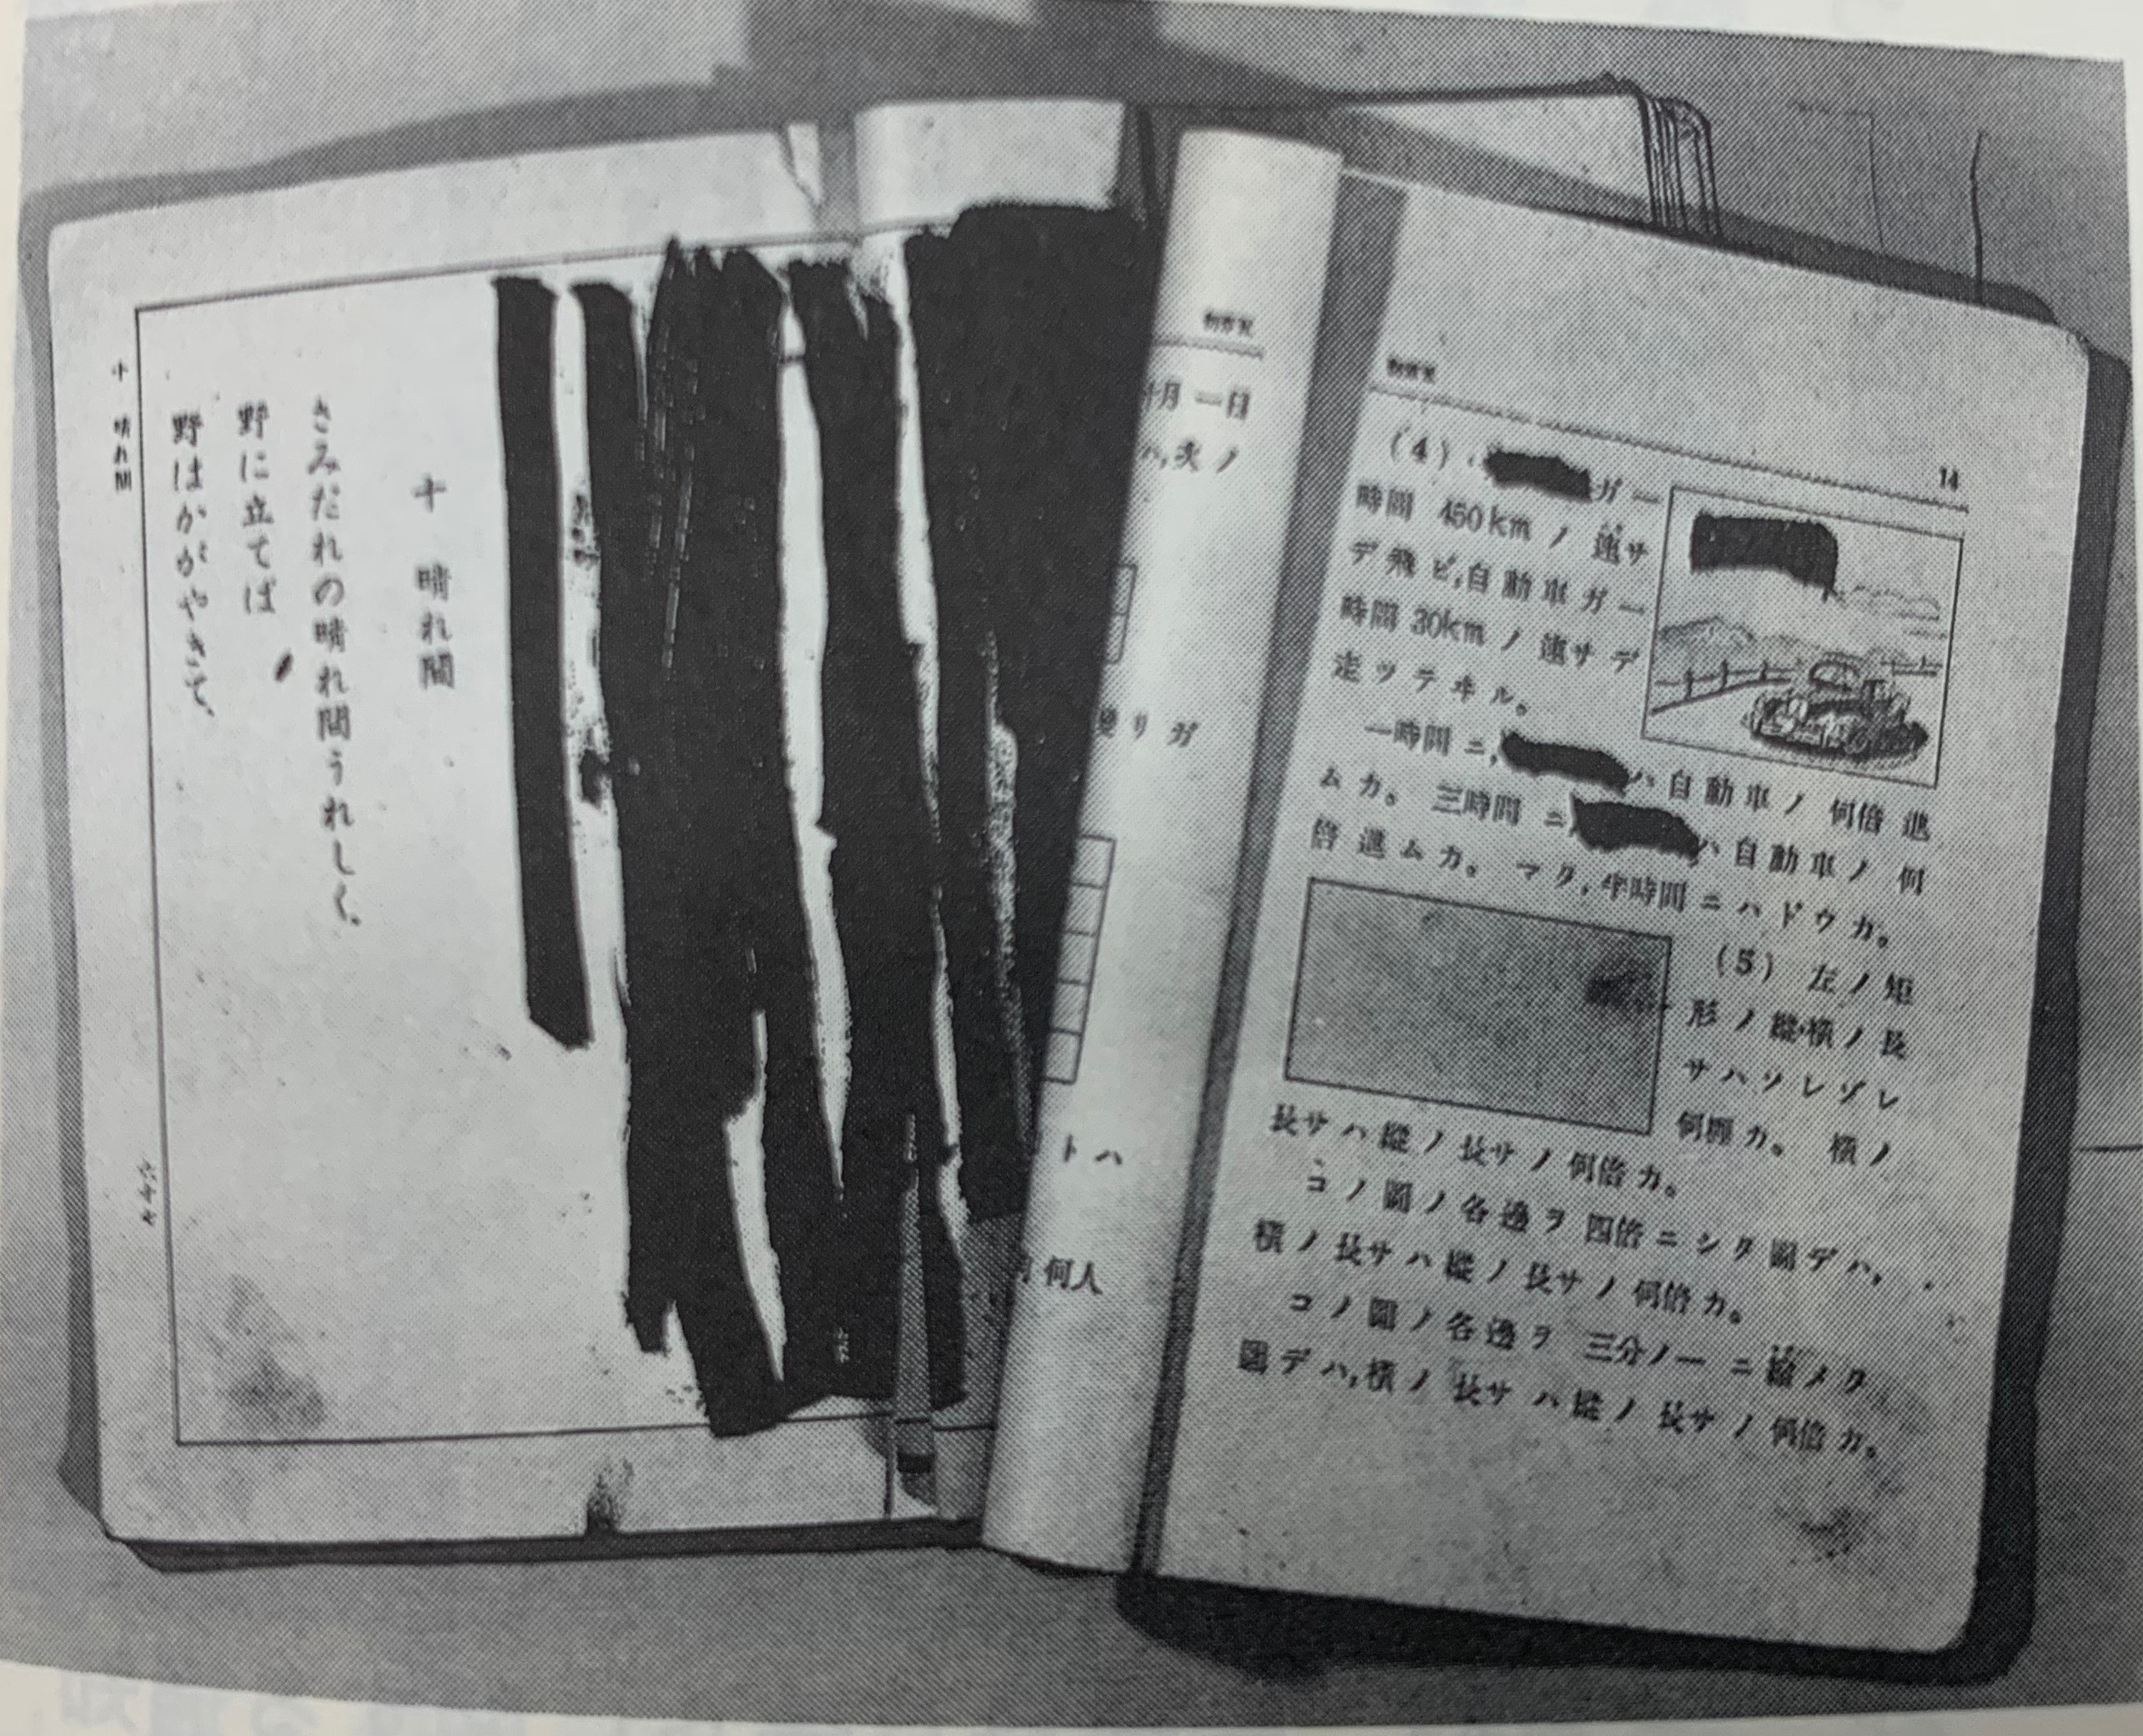 十 晴れ間
さみだれの晴れ間うれしく、
野に立てば
野はかがやきて、
十 晴れ間
六十七
十月一日
ハ,次ノ
變リガ
トハ
何人
14
(4) ガ一
時間 450km ノ 速サ
デ 飛ビ,自動車ガ一
時間 30km ノ 速サデ
走ツテヰル。
一時間ニ, ハ自動車ノ 何倍 進
ムカ。 三時間ニ ハ自動車ノ 何
倍 進ムカ。 マタ,半時間ニハドウカ。
(5) 左ノ矩
形ノ縱・横ノ長
サハソレゾレ
何糎カ。 横ノ
長サハ縱ノ長サノ何倍カ。
コノ圖ノ各邊ヲ 四倍ニシタ圖デハ,
横ノ長サハ縱ノ長サノ何倍カ。
コノ圖ノ各邊ヲ 三分ノ一ニ縮メタ
圖デハ,横ノ長サハ縱ノ長サノ何倍カ。